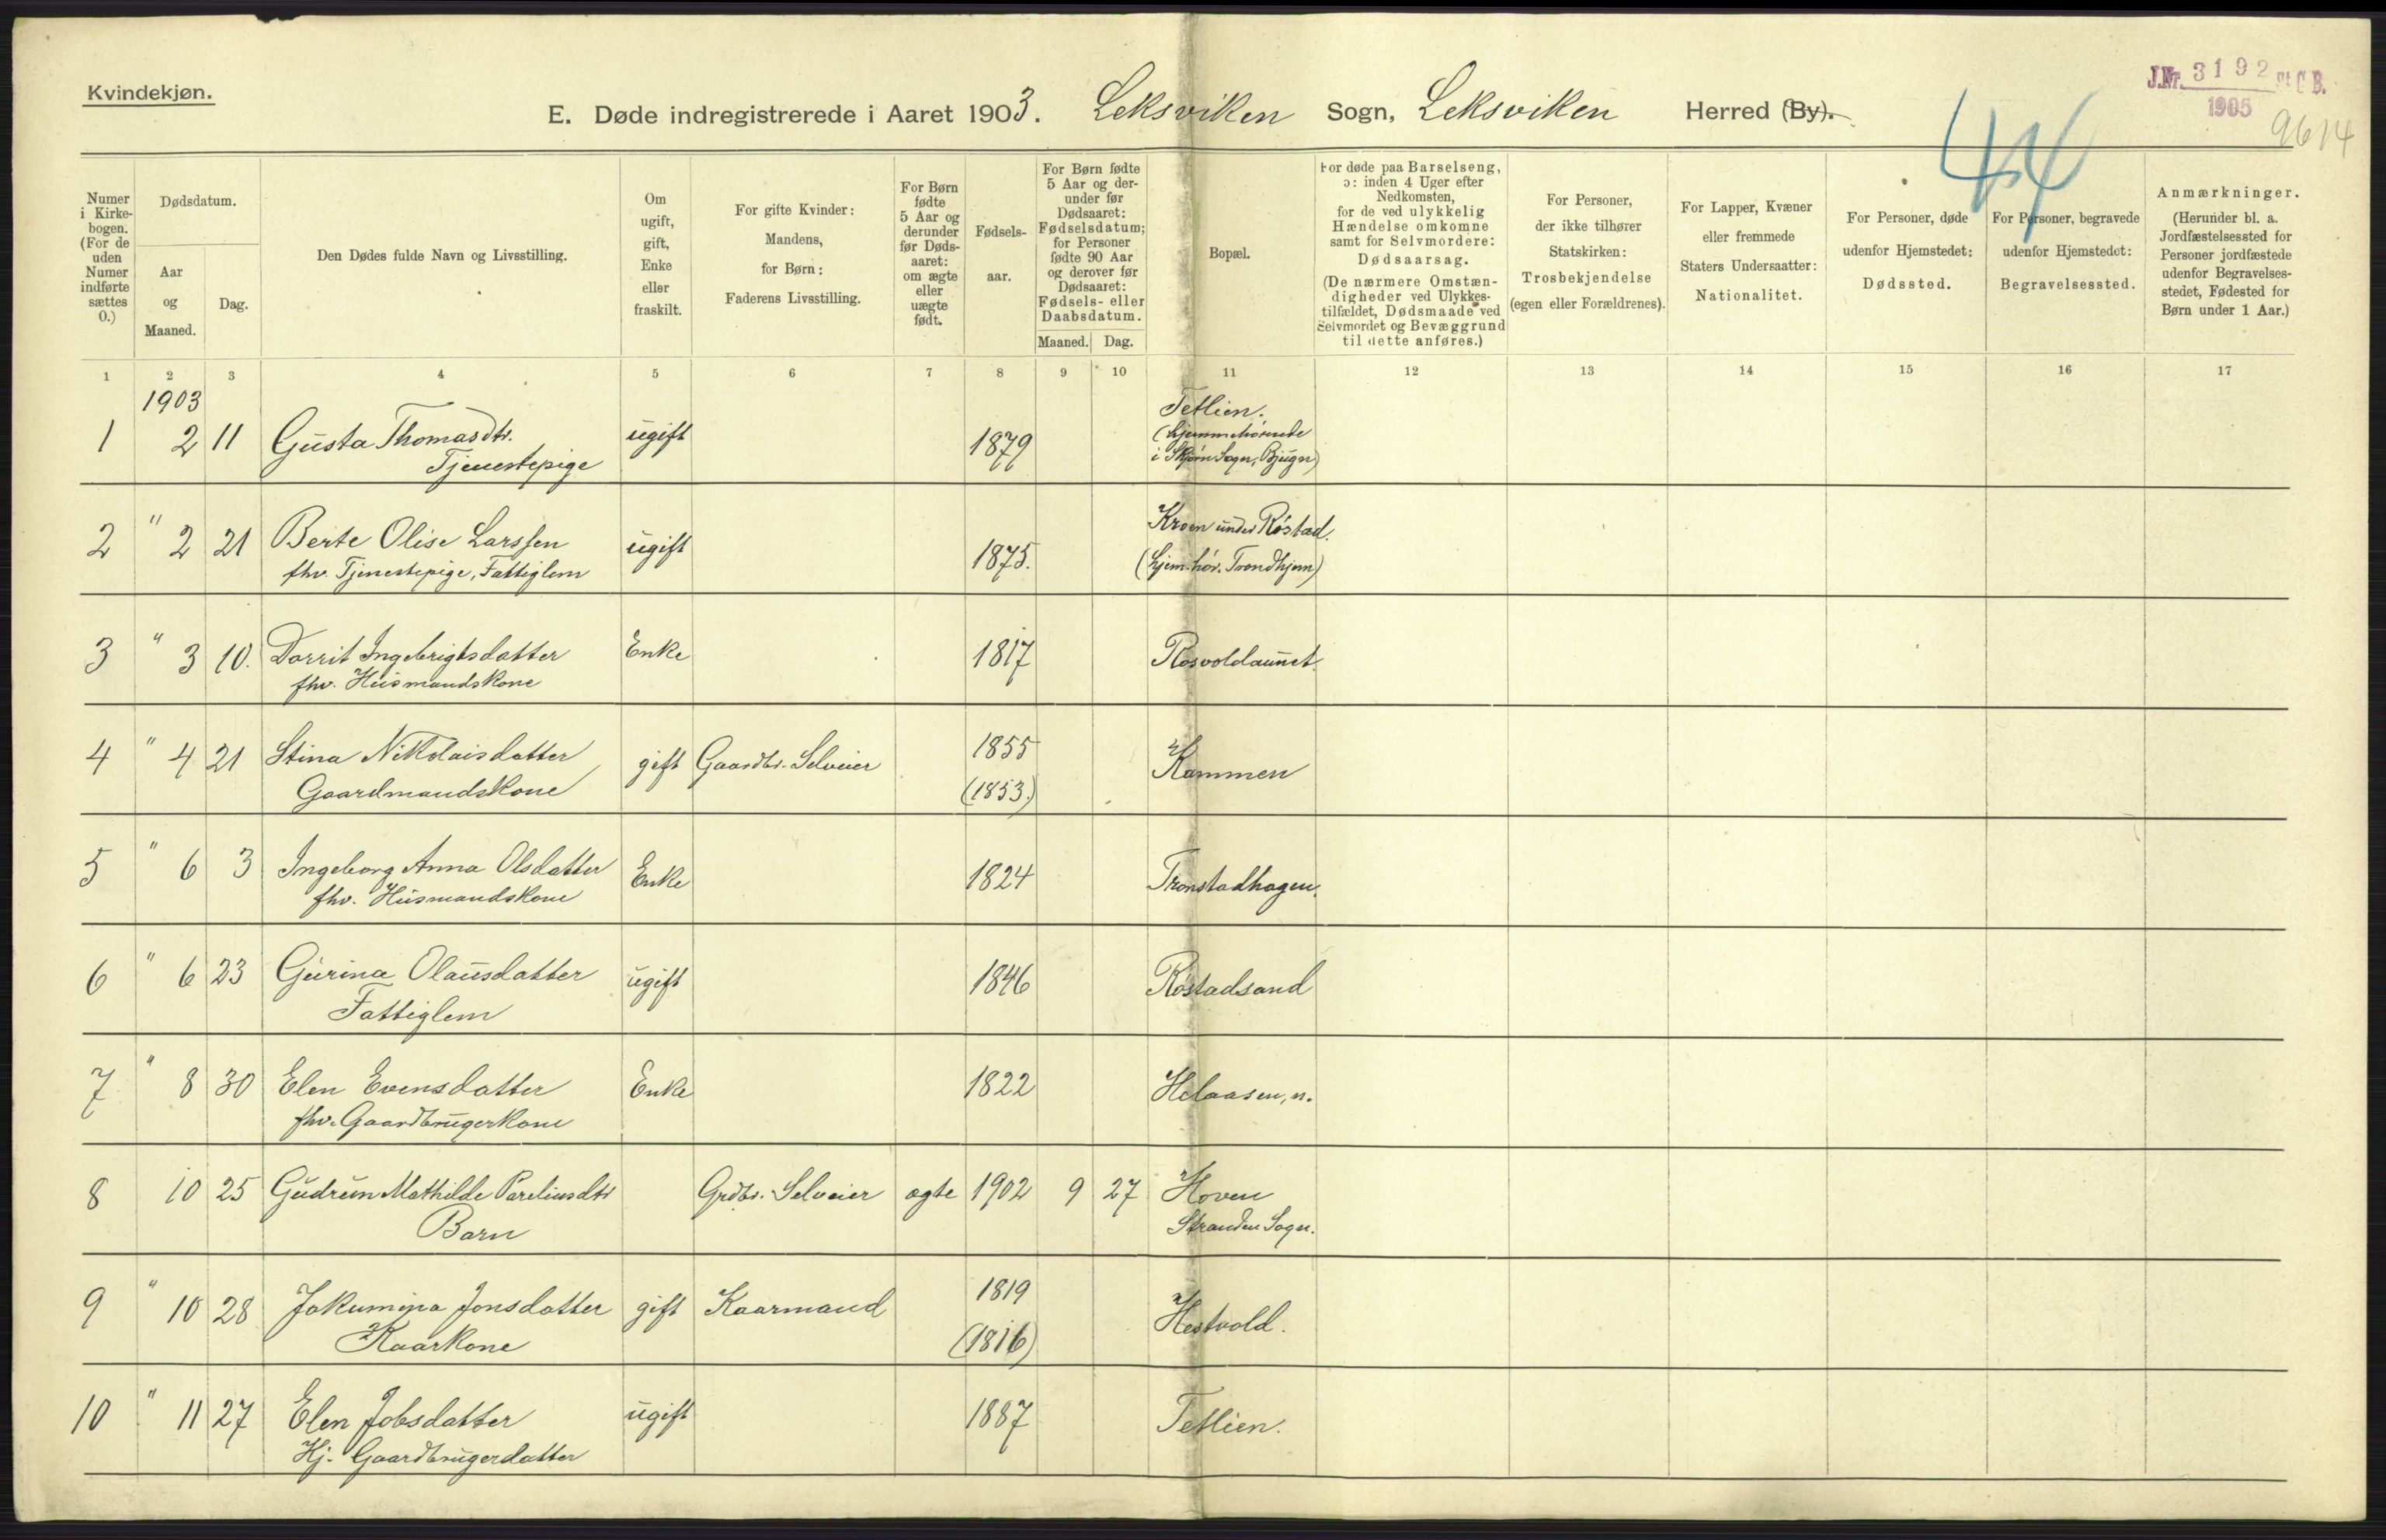 Kvindekjøn.
E. Døde indregistrerede i Aaret 1903. Leksviken Sogn, Leksviken Herred (By).
J.Nr. 3192 St C B.
1905
9614
44
Numer i Kirke-bogen. (For de uden Numer indførte sættes 0.)
Dødsdatum.
Aar og Maaned.
Dag.
Den Dødes fulde Navn og Livsstilling.
Om ugift, gift, Enke eller fraskilt.
For gifte Kvinder: Mandens, for Børn: Faderens Livsstilling.
For Børn fødte 5 Aar og derunder før Døds-aaret: om ægte eller uægte født.
Fødsels-aar.
For Børn fødte 5 Aar og der-under før Dødsaaret: Fødselsdatum; for Personer fødte 90 Aar og derover før Dødsaaret: Fødsels- eller Daabsdatum.
Maaned. Dag.
Bopæl.
For døde paa Barselseng, ɔ: inden 4 Uger efter Nedkomsten, for de ved ulykkelig Hændelse omkomne samt for Selvmordere: Dødsaarsag. (De nærmere Omstæn-digheder ved Ulykkes-tilfældet, Dødsmaade ved Selvmordet og Bevæggrund til dette anføres.)
For Personer, der ikke tilhører Statskirken: Trosbekjendelse (egen eller Forældrenes).
For Lapper, Kvæner eller fremmede Staters Undersaatter: Nationalitet.
For Personer, døde udenfor Hjemstedet: Dødssted.
For Personer, begravede udenfor Hjemstedet: Begravelsessted.
Anmærkninger. (Herunder bl. a. Jordfæstelsessted for Personer jordfæstede udenfor Begravelses-stedet, Fødested for Børn under 1 Aar.)
1 2 3 4 5 6 7 8 9 10 11 12 13 14 15 16 17
1903
1 2 11 Gusta Thomasdtr. ugift 1879 Tetlien.
Tjenestepige (hjemmehørende
i Skjørn Sogn, Bjugn)
2 " 2 21 Berte Olise Larssen ugift 1875. Kroen under Röstad.
fhv. Tjenestepige, Fattiglem (hjem.hør. Trondhjem)
3 " 3 10. Dorrit Ingebrigtsdatter Enke 1817 Rosvoldaunet.
fhv. Husmandskone
4 " 4 21 Stina Nikolaisdatter gift Gaardbr. Selveier 1855 Kammen
Gaardmandskone (1853.)
5 " 6 3 Ingeborg Anna Olsdatter Enke 1824 Tronstadhagen.
fhv. Husmandskone
6 " 6 23 Gurina Olausdatter ugift 1846 Röstadsand
Fattiglem
7 " 8 30 Elen Evensdatter Enke 1822 Helaasen, n.
fhv. Gaardbrugerkone
8 10 25 Gudrun Mathilde Pareliusdtr Grdbr. Selveier ægte 1902 9 27 Hoven
Barn Stranden Sogn.
9 " 10 28 Jakumina Jonsdatter gift Kaarmand 1819 Hestvold.
Kaarkone (1816)
10 " 11 27 Elen Jobsdatter ugift 1887 Tetlien.
Hj. Gaardbrugerdatter